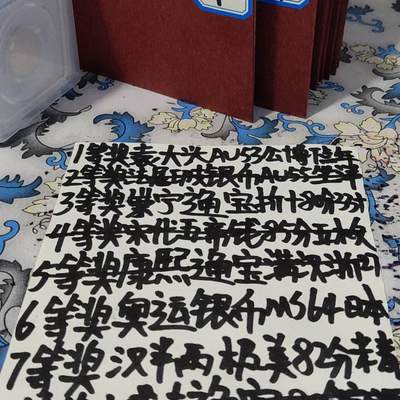 1等奖袁大头AU53公博信年
2等奖法属 银币AU55坐洋
3等奖崇宁通宝折十80分
4等奖宋代五帝钱85分五枚
5等奖康熙通宝满汉浙
6等奖奥运银币MS64日本
7等奖汉半两极美82分